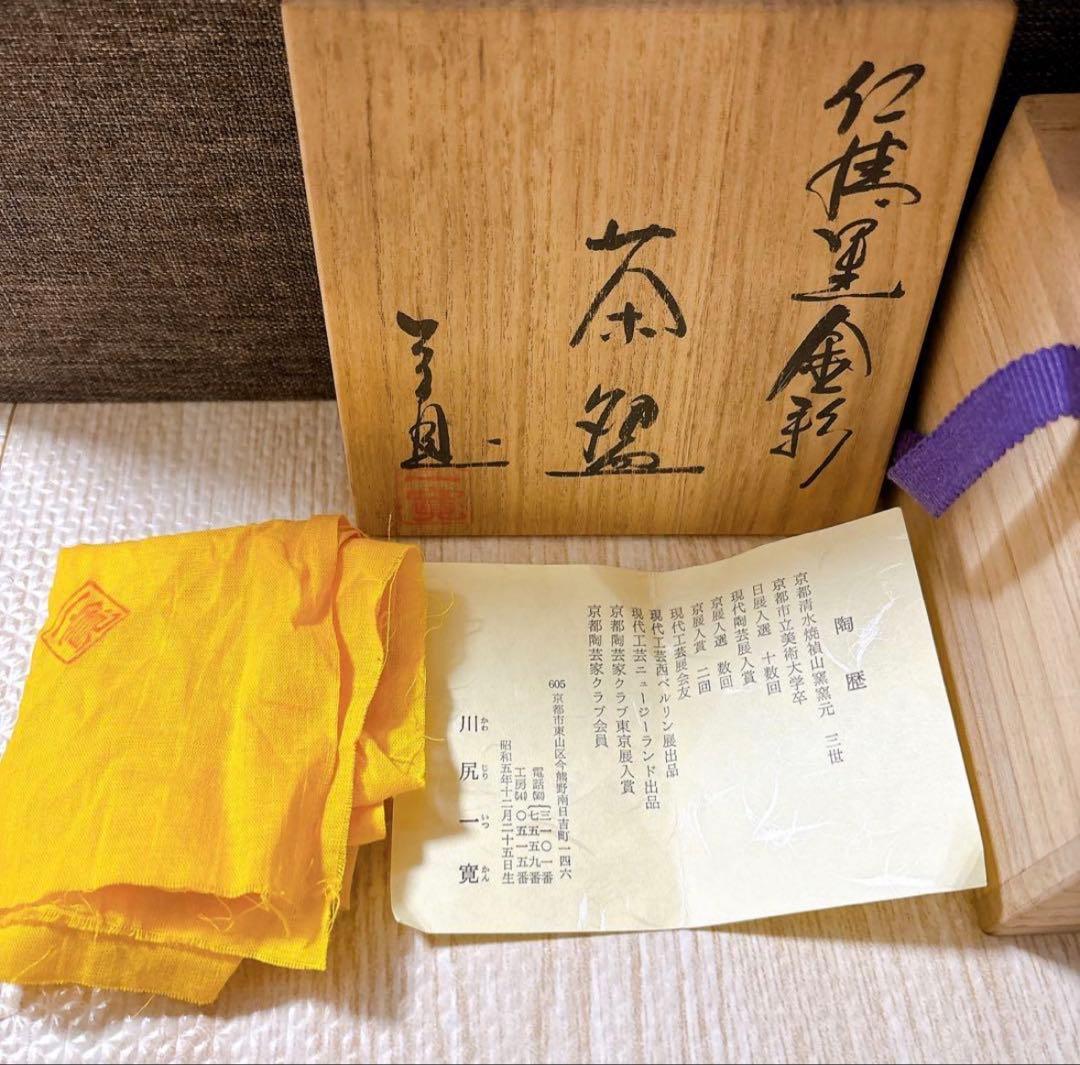 茶盌
金彩
陶歴
京都清水焼禎山窯窯元 三世
京都市立美術大学卒
日展入選 十数回
現代陶芸展入賞
京展入選 数回
京展入賞 二回
現代工芸展会友
現代工芸西ベルリン展出品
現代工芸ニュージーランド出品
京都陶芸家クラブ東京展入賞
京都陶芸家クラブ会員
605 京都市東山区今熊野南日吉町一四六
電話 三一〇一番
七五五九番
工房(541)〇五一五番
昭和五年十二月二十五日生
川尻一寛
かわ じり いつ かん